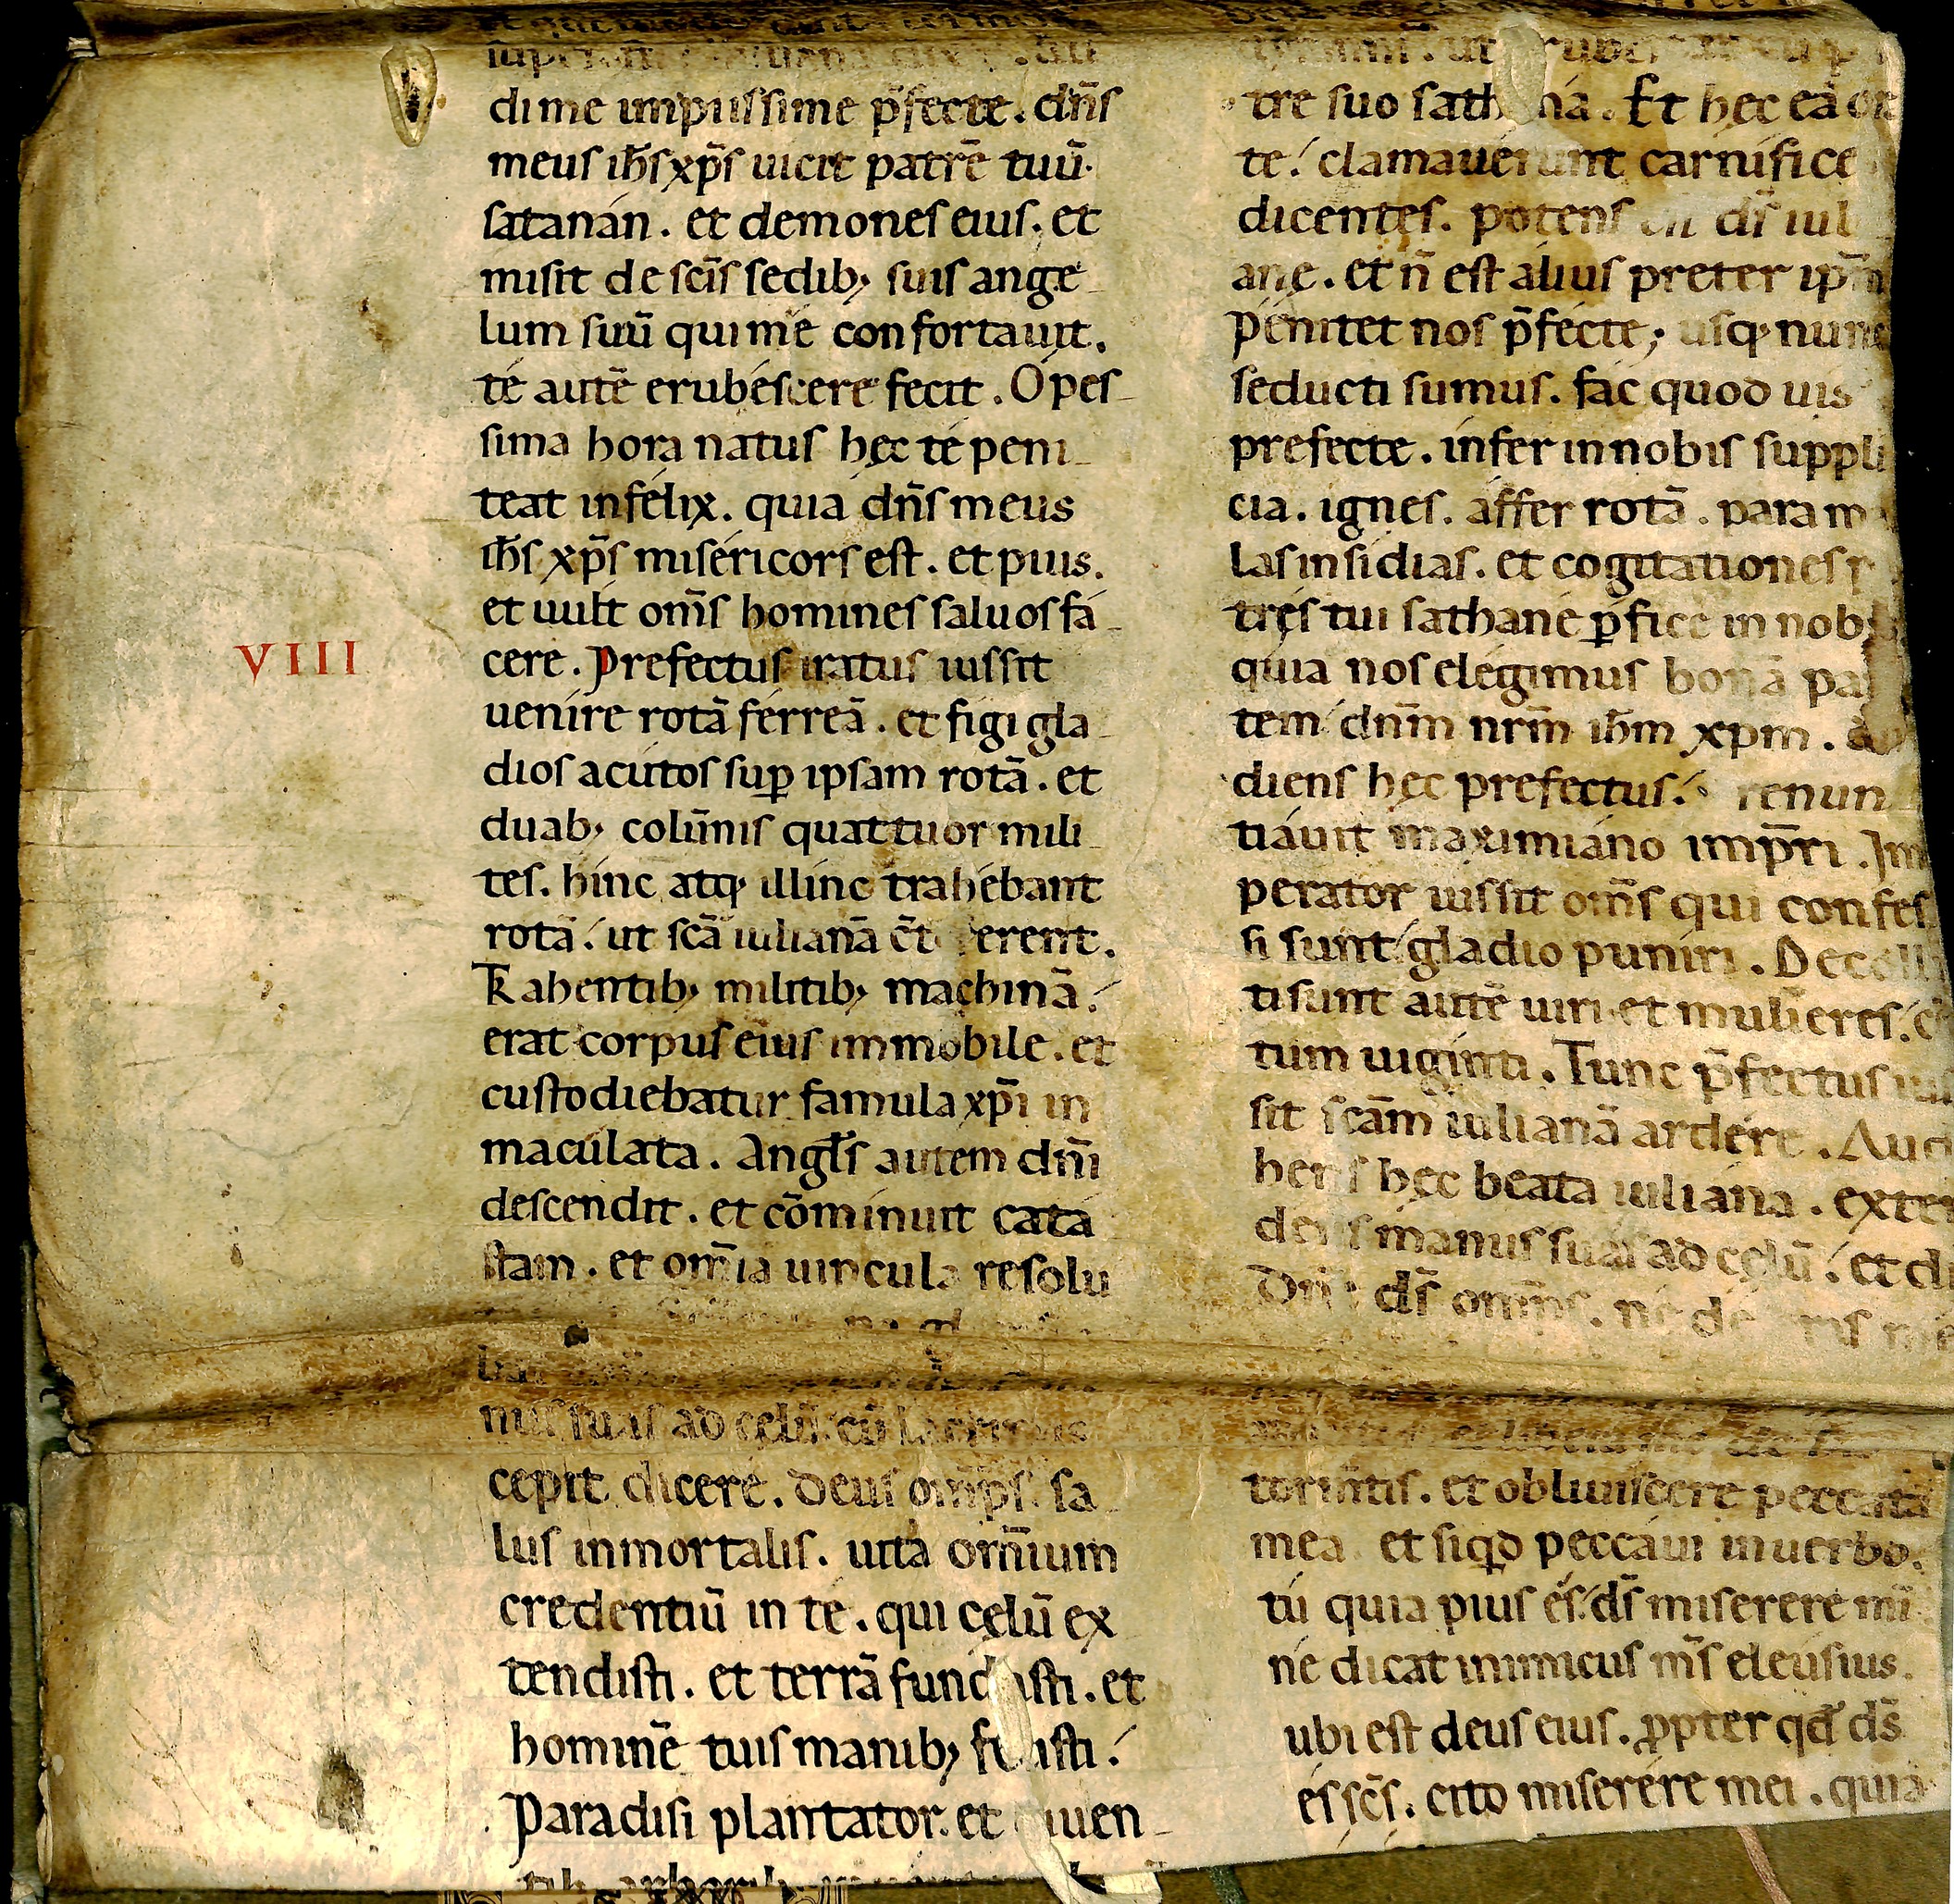 dime impiissime p̄fecte. dn̄s
meus ih̄s xp̄s uicit patrē tuū.
satanan. et demones eius. et
misit de scīs sedib; suis ange
lum suū qui me confortauit.
te autē erubescere fecit. O pes
sima hora natus hęc te peni
teat infelix. quia dn̄s meus
ih̄s xp̄s misericors est. et pius.
et uult om̄s homines saluos fa
VIII
cere. Prefectus iratus iussit
uenire rotā ferreā. et figi gla
dios acutos suꝑ ipsam rotā. et
duab; colūnis quattuor mili
tes. hinc atq; illinc trahebant
rotā. ut scā iulianā erent.
Trahentib; militib; machinā.
erat corpus eius immobile. et
custodiebatur famula xp̄i in
maculata. Angl̄s autem dn̄i
descendit. et cōminuit cata
stam. et om̄ia uincula resolu
nus suas ad cęlū. cū
cepit dicere. Deus om̄ps. sa
lus inmortalis. uita om̄ium
credentiū in te. qui cęlū ex
tendisti. et terrā fundasti. et
hominē tuis manib;
Paradisi plantator. et uiuen
tre suo sathana. Et hęc eā
te. clamauerunt carnifice
dicentes. potens ds̄ iuli
ane. et n̄ est alius preter ip̄m
Penitet nos p̄fecte; usq; nunc
seducti sumus. fac quod uis
prefecte. infer in nobis suppli
cia. ignes. affer rotā. para ma
las insidias. et cogitationes
tres tui sathane ꝑfice in nob
quia nos elegimus bonā pa
tem dn̄m nr̄m ih̄m xp̄m. au
diens hęc prefectus. renun
tiauit maximiano imp̄ri. Im
perator iussit om̄s qui confes
si sunt gladio puniri. Decolla
ti sunt autē uiri et mulieres. c
tum uiginti. Tunc p̄fectus ius
sit scām iulianā ardere. Aud
hens hęc beata iuliana. exten
dens manus suas ad cęlū. et di
Dn̄e ds̄ om̄ps. ne de
et obliuiscere peccata
mea et siq̄d peccaui in uerbo.
tu quia pius es. ds̄ miserere m̄i
ne dicat inimicus m̄s eleusius.
ubi est deus eius. ꝓpter qd̄ ds̄
es scs̄. cito miserere mei. quia